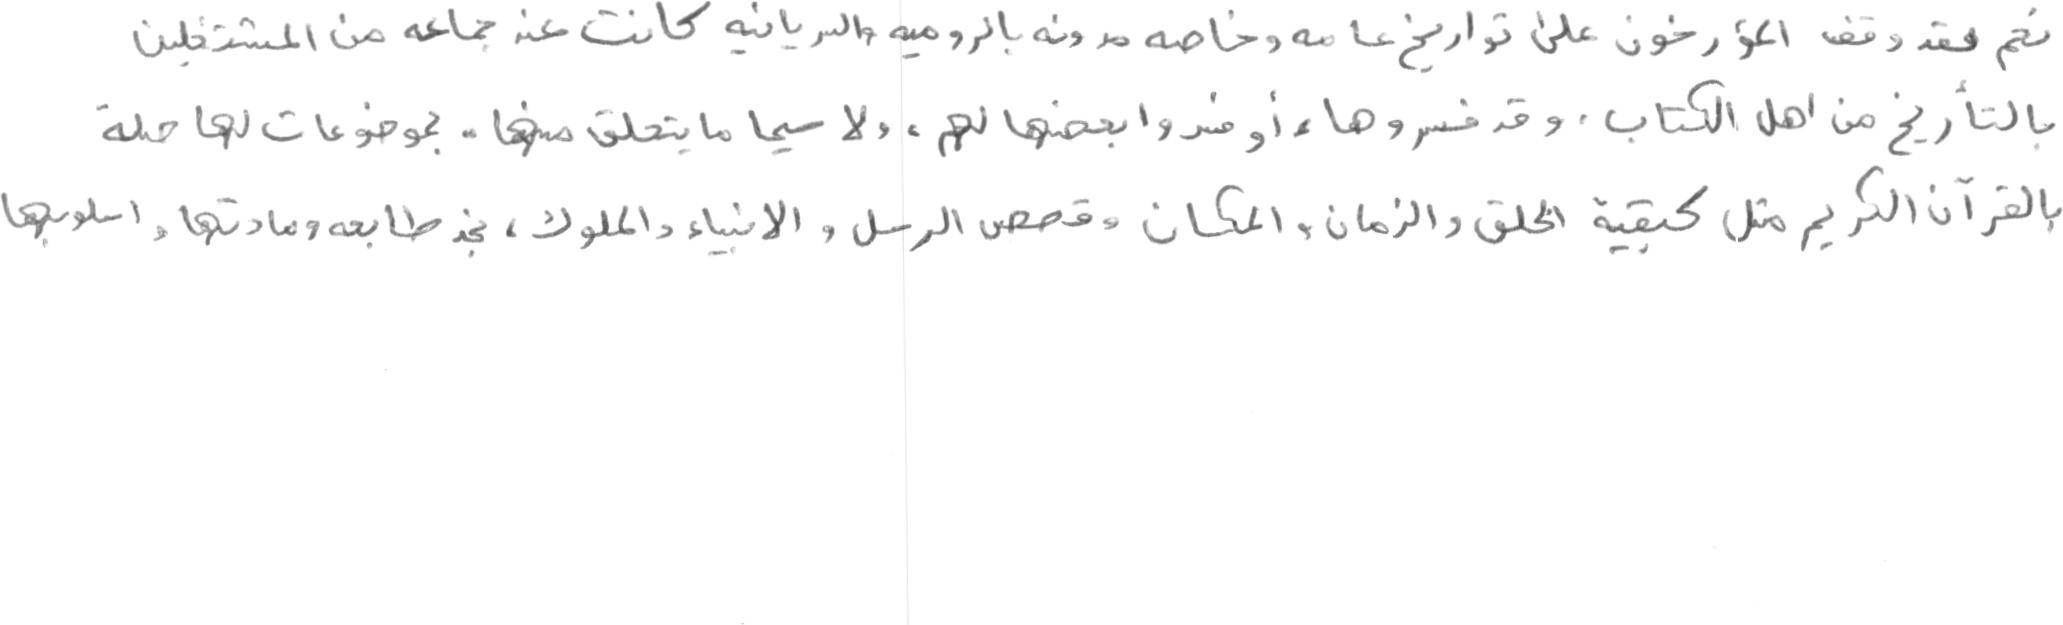 نعم فقد وقف المؤرخون على تواريخ عامه وخاصه مدونه بالروميه والسريانيه كانت عند جماعه من المشتغلين
بالتأريخ من اهل الكتاب، وقد فسروها، أو فندوا بعضها لهم، ولا سيما ما يتعلق منها بموضوعات لها صلة
بالقرآن الكريم مثل كبقية الخلق والزمان والمكان وقصص الرسل والانبياء والملوك، نجد طابعه ومادتها واسلوبها